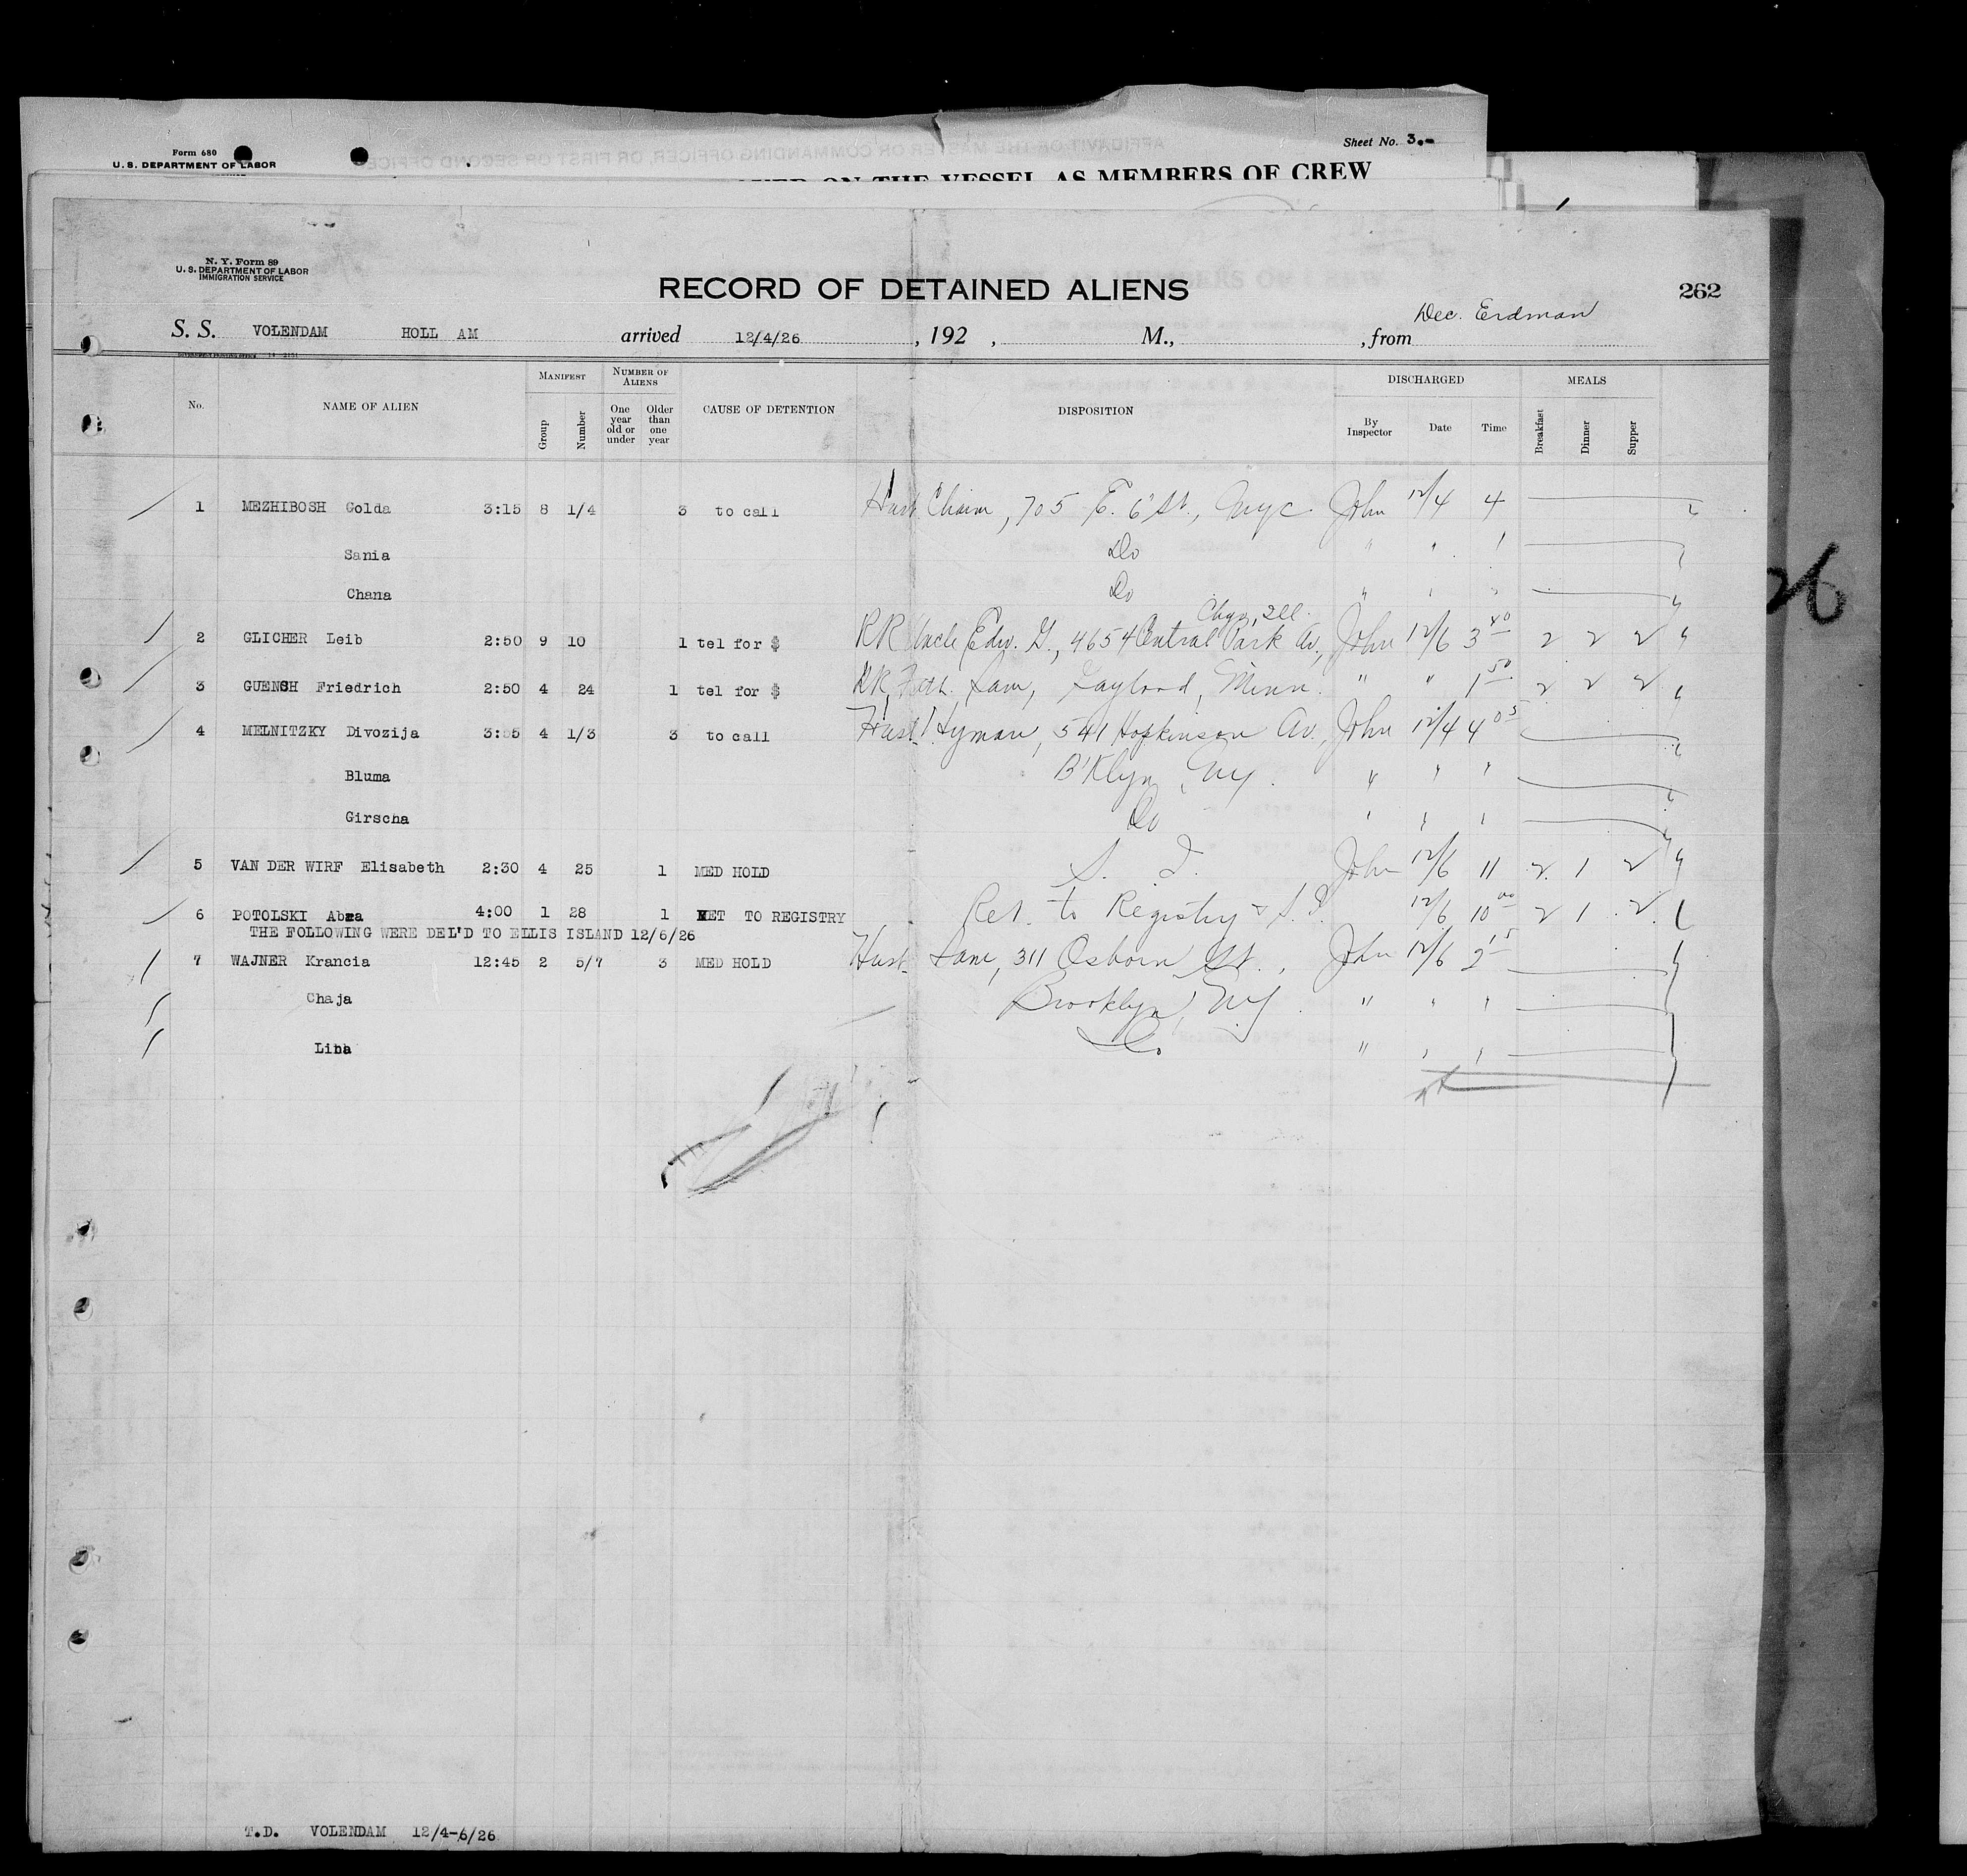 Form 680
U. S. DEPARTMENT OF LABOR
Sheet No. 3.
ON THE VESSEL AS MEMBERS OF CREW
N. Y. Form 89
U. S. DEPARTMENT OF LABOR
IMMIGRATION SERVICE
RECORD OF DETAINED ALIENS 262
Dec. Erdman
S. S. VOLENDAM HOLL AM arrived 12/4/26, 192 , M., , from
MANIFEST NUMBER OF ALIENS DISCHARGED MEALS
No. NAME OF ALIEN Group Number One year old or under Older than one year CAUSE OF DETENTION DISPOSITION By Inspector Date Time Breakfast Dinner Supper
1 MEZHIBOSH Golda 3:15 8 1/4 3 to call Husb Chaim, 705 E. 6 St., NYC. John 12/4 4
Sania Do " " "
Chana Do " " "
Chgo, Ill.
2 GLICHER Leib 2:50 9 10 1 tel for $ RR Uncle Edw. G., 4654 Central Park Av., John 12/6 3 40 2 2 2
3 GUENSH Friedrich 2:50 4 24 1 tel for $ RR Fath. Sam, Gaylord, Minn. " " 1 50 2 2 2
4 MELNITZKY Divozija 3:55 4 1/3 3 to call Husb Hyman, 541 Hopkinson Av., John 12/4 4 05
Bluma B'Klyn, NY. " " "
Girscha Do " " "
5 VAN DER WIRF Elisabeth 2:30 4 25 1 MED HOLD S. I. John 12/6 11 2 1 2
6 POTOLSKI Abra 4:00 1 28 1 RET TO REGISTRY Ret. to Registry & S.I. 12/6 10 00 2 1 2
THE FOLLOWING WERE DEL'D TO ELLIS ISLAND 12/6/26
7 WAJNER Krancia 12:45 2 5/7 3 MED HOLD Husb Sam, 311 Osborn St., John 12/6 2 15
Chaja Brooklyn, NY. " " "
Liba Do. " " "
26
T.D. VOLENDAM 12/4-6/26